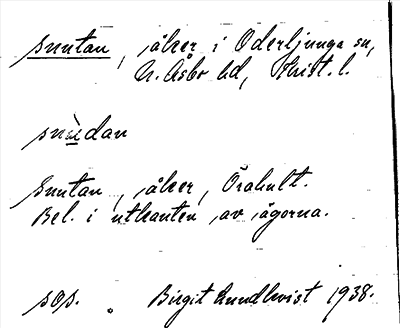 snutan, åker i Oderljunga sn,
N. Åsbo hd, Krist. l.
Snutan, åker, Örahult.
Bel. i utkanten av ägorna.
sos. Birgit Lundkvist 1938.